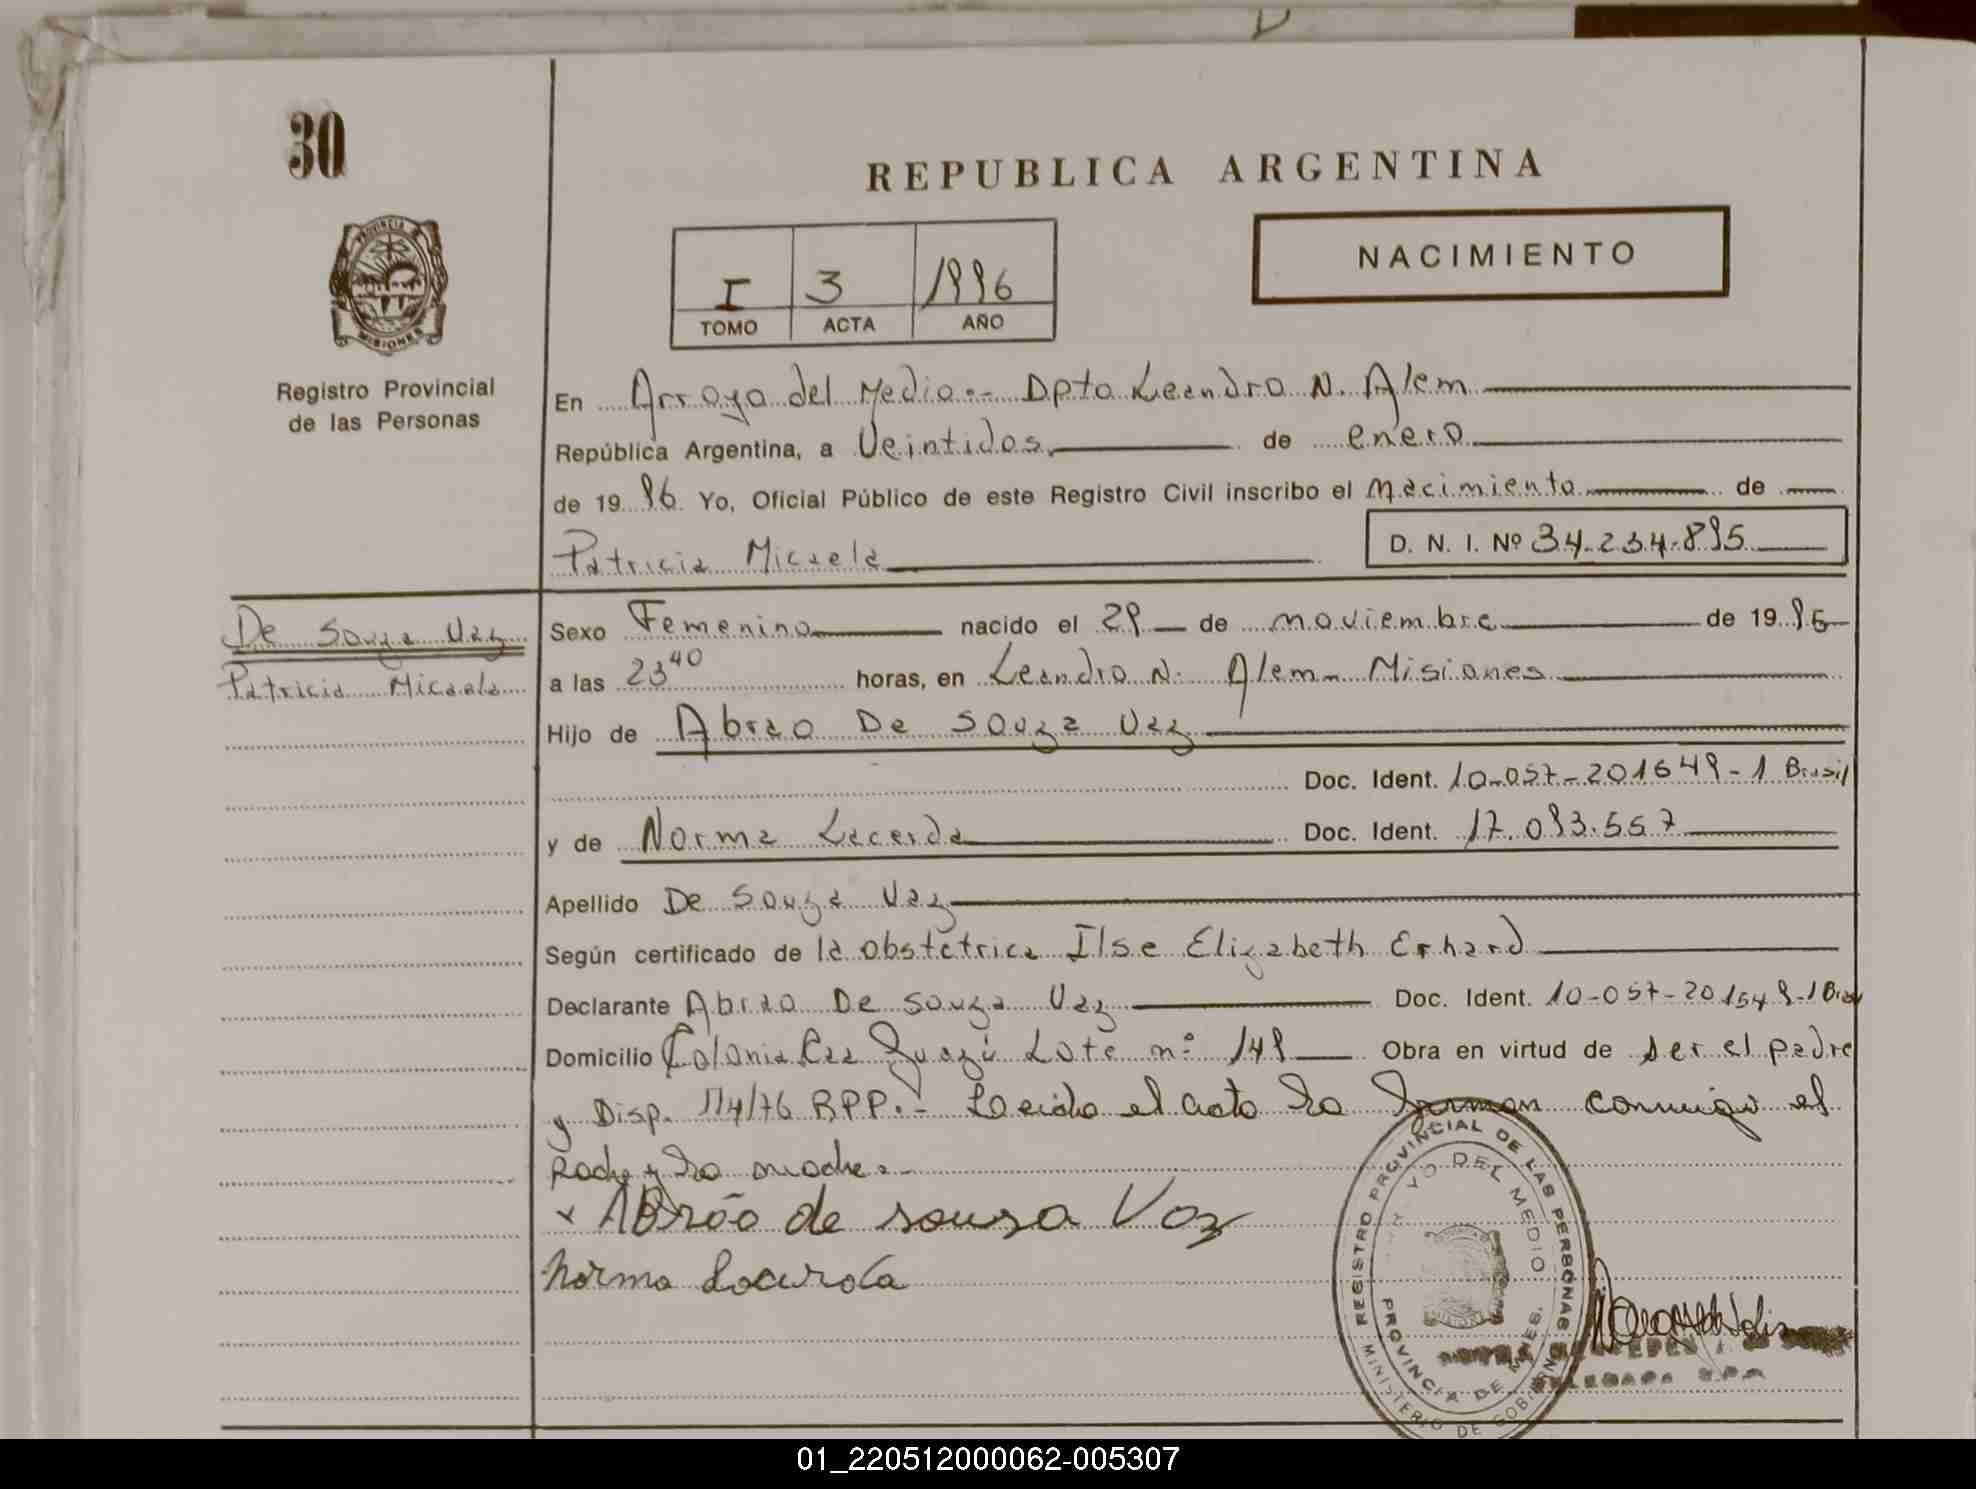 30
REPUBLICA ARGENTINA
NACIMIENTO
I 3 1996
TOMO ACTA AÑO
PROVINCIA DE
MISIONES
Registro Provincial
de las Personas
En Arroyo del Medio.- Dpto Leandro N. Alem
República Argentina, a Veintidos de enero
de 1996 Yo, Oficial Público de este Registro Civil inscribo el nacimiento de
Patricia Micaela D. N. I. Nº 34.234.895
De Souza Vaz
Patricia Micaela
Sexo Femenino nacido el 29 de noviembre de 1995
a las 23 40 horas, en Leandro N. Alem Misiones
Hijo de Abrao De Souza Vaz
Doc. Ident. 10-057-201649-1 Brasil
y de Norma Lacerda Doc. Ident. 17.093.557
Apellido De Souza Vaz
Según certificado de la obstetrica Ilse Elizabeth Erhard
Declarante Abrao De Souza Vaz Doc. Ident. 10-057-201549-1 Bras
Domicilio Colonia Caa Guazú Lote nº 149 Obra en virtud de ser el padre
y Disp. 114/76 RPP.- Leida el acta la firman conmigo el
Padre y la madre.-
x ABrão de souza Vaz
Norma Lacerda
REGISTRO PROVINCIAL DE LAS PERSONAS
YO DEL MEDIO
PROVINCIA DE MNES.
MINISTERIO DE GOBIERNO
DELEGADA
01_220512000062-005307